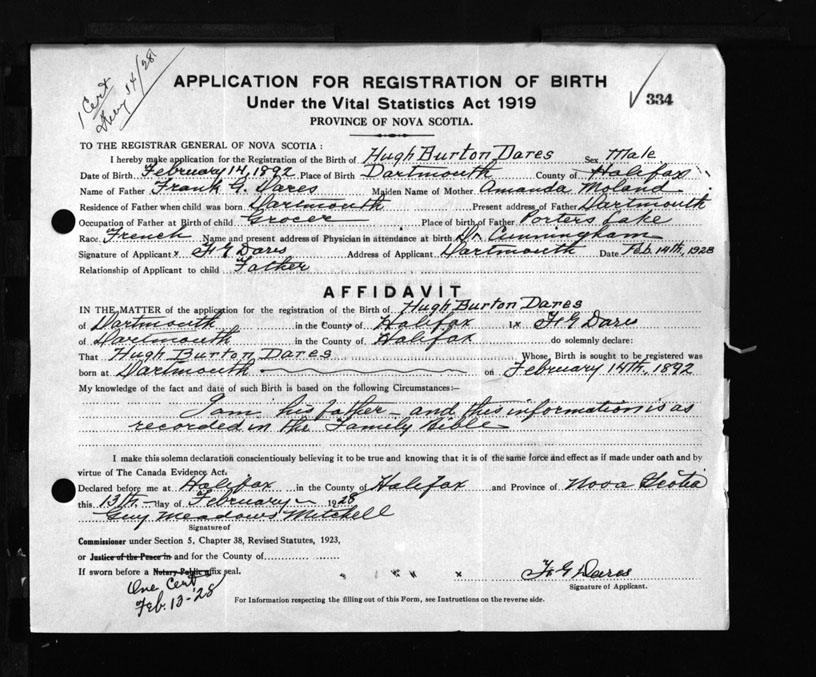 1 Cert
14/28
APPLICATION FOR REGISTRATION OF BIRTH
Under the Vital Statistics Act 1919
334
PROVINCE OF NOVA SCOTIA.
TO THE REGISTRAR GENERAL OF NOVA SCOTIA:
I hereby make application for the Registration of the Birth of Hugh Burton Dares Sex Male
Date of Birth February 14, 1892 Place of Birth Dartmouth County of Halifax
Name of Father Frank G. Dares Maiden Name of Mother Amanda Moland
Residence of Father when child was born Dartmouth Present address of Father Dartmouth
Occupation of Father at Birth of child Grocer Place of birth of Father Porters Lake
Race French Name and present address of Physician in attendance at birth Dr. Cunningham
Signature of Applicant x F G Dares Address of Applicant Dartmouth Date Feb. 14th, 1928
Relationship of Applicant to child Father
AFFIDAVIT
IN THE MATTER of the application for the registration of the Birth of Hugh Burton Dares
of Dartmouth in the County of Halifax I x F G Dares
of Dartmouth in the County of Halifax do solemnly declare:
That Hugh Burton Dares Whose Birth is sought to be registered was
born at Dartmouth on February 14th, 1892
My knowledge of the fact and date of such Birth is based on the following Circumstances:—
I am his father - and this information is as
recorded in the Family Bible
I make this solemn declaration conscientiously believing it to be true and knowing that it is of the same force and effect as if made under oath and by
virtue of The Canada Evidence Act.
Declared before me at Halifax in the County of Halifax and Province of Nova Scotia
this 13th day of February 1928
Guy Meadows Mitchell
Signature of
Commissioner under Section 5, Chapter 38, Revised Statutes, 1923,
or Justice of the Peace in and for the County of
If sworn before a Notary Public affix seal.
x F G Dares
Signature of Applicant.
One Cert
Feb. 13-'28
For Information respecting the filling out of this Form, see Instructions on the reverse side.